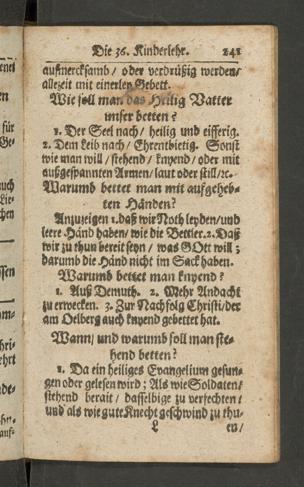 Die 36. Kinderlehr. 241
auffmercksamb / oder verdrüßig werden/
allezeit mit einerley Gebett.
Wie soll man das Heilig Vatter
unser betten?
1. Der Seel nach / heilig und eifferig.
2. Dem Leib nach / Ehrentbietig. Sonst
wie man will / stehend / knyend / oder mit
außgespannten Armen/ laut oder still/ꝛc.
Warumb bettet man mit auffgeheb-
ten Händen?
Anzuzeigen 1. daß wir Noth leyden/und
leere Händ haben/ wie die Bettler. 2. Daß
wir zu thun bereit seyn / was GOtt will ;
darumb die Händ nicht im Sack haben.
Warumb bettet man knyend?
1. Auß Demuth. 2. Mehr Andacht
zu erwecken. 3. Zur Nachfolg Christi/der
am Oelberg auch knyend gebettet hat.
Wann/ und warumb soll man ste-
hend betten?
1. Da ein heiliges Evangelium gesun-
gen oder gelesen wird ; Als wie Soldaten/
stehend berait / dasselbige zu verfechten /
und als wie gute Knecht geschwind zu thu-
L en/